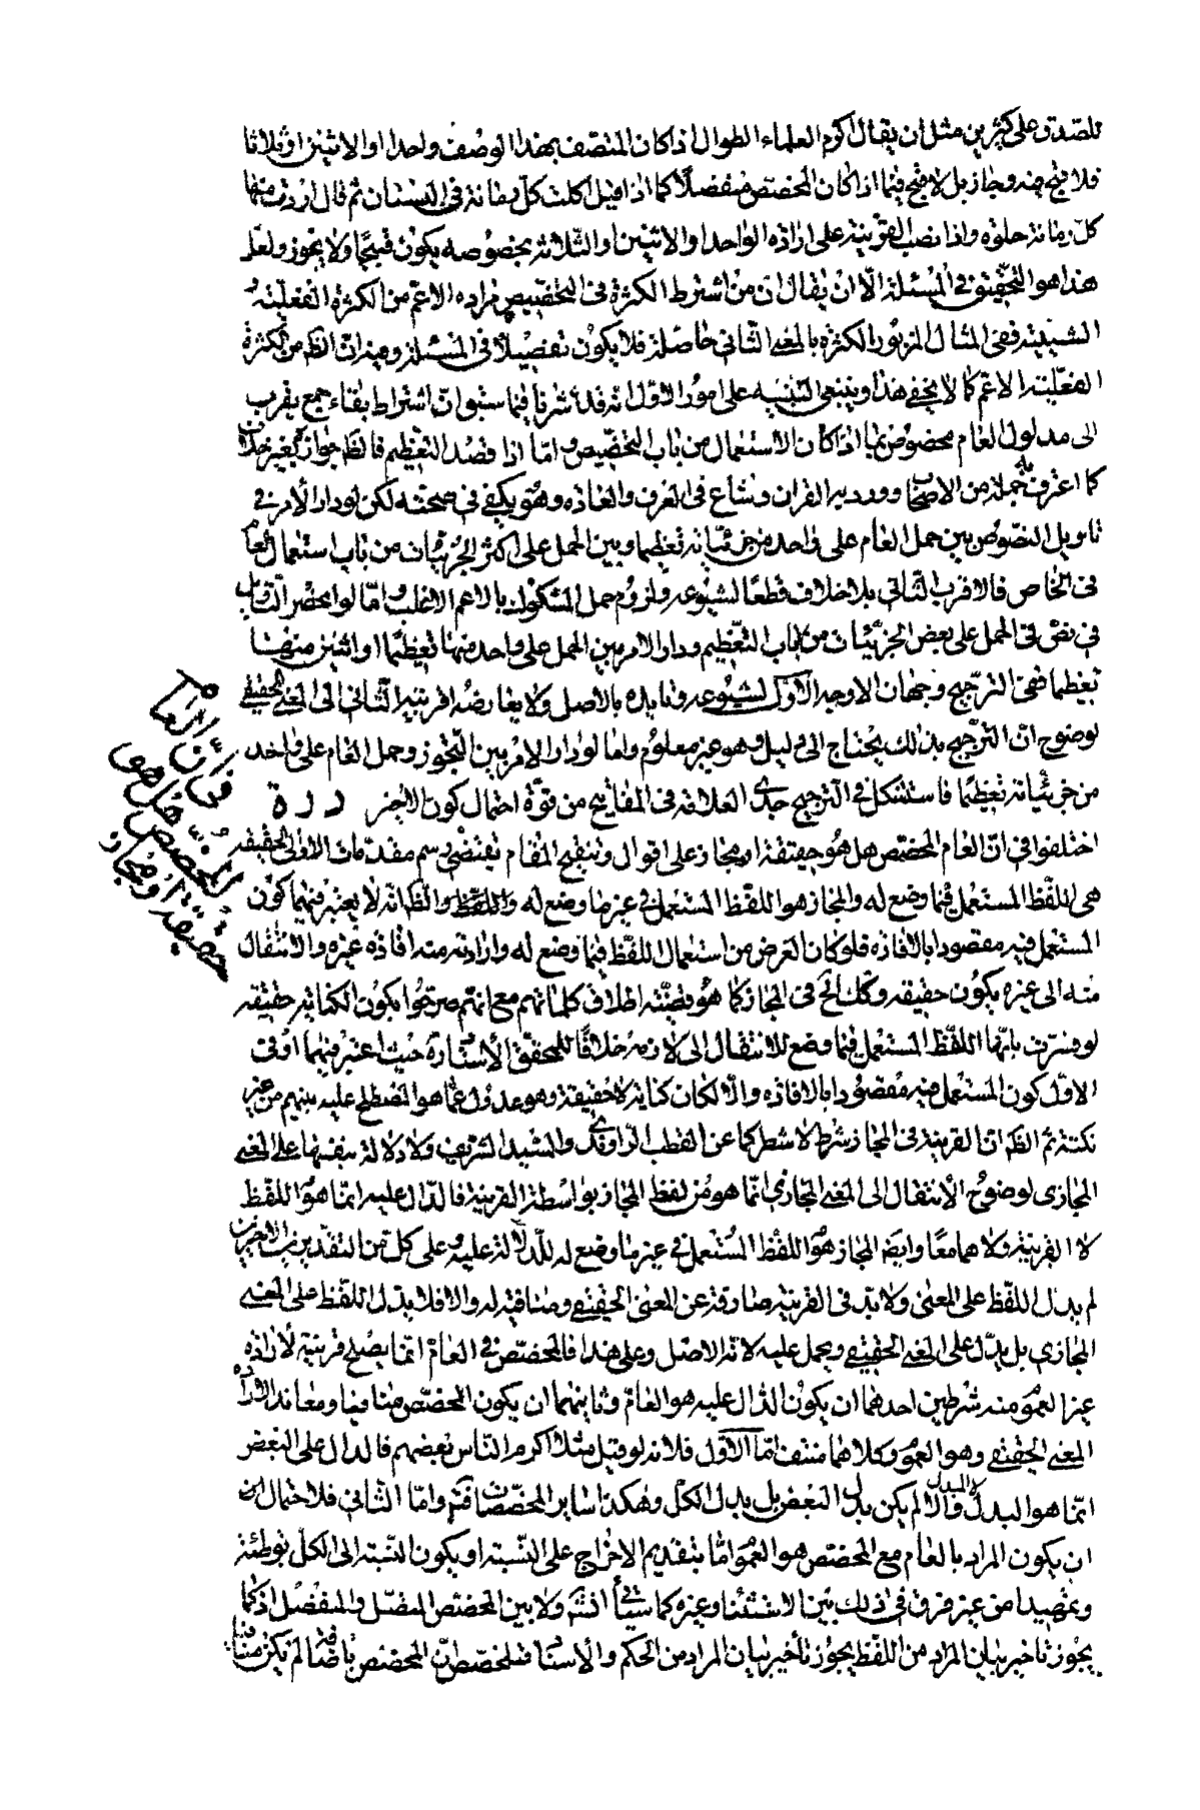 للصدق على كثيرين مثل ان يقال اكرم العلماء الطوال اذا كان المتصف بهذا الوصف واحدا او الاثنين او ثلاثا
فلا قبح فيه وجاز بل لا قبح فيما اذا كان المخصص منفصلا كما اذا قيل اكلت كل رمانة في البستان ثم قال اردت منها
كل رمانة حلوة واذا نصب القرينة على ارادة الواحد او الاثنين او الثلاثة بخصوصه يكون قبيحا ولا يجوز ولعل
هذا هو التحقيق في المسئلة الا ان يقال ان من اشترط الكثرة في التخصيص مراده الاعم من الكثرة الفعلية
الشبيهة ففي المثال المزبور الكثرة بالمعنى الثاني حاصلة فلا يكون تفصيلا في المسئلة وفيه ان الظ من الكثرة
الفعلية الاعم كما لا يخفى هذا وينبغي التنبيه على امور الاول انه قد اشرنا فيما سبق ان اشتراط بقاء جمع يقرب
الى مدلول العام مخصوص بما اذا كان الاستعمال من باب التخصيص واما اذا قصد التعظيم فالظ جوازه بغير خلاف
كما اعترف به جملة من الاصحاب وورد به القران وشاع في العرف والعادة وهو يكفي في صحته لكن لو دار الامر في
تاويل النصوص بين حمل العام على واحد من جزئياته تعظيما وبين الحمل على اكثر الجزئيات من باب استعمال العام
في الخاص فالاقرب الثاني بلا خلاف قطعا لشيوعه ولزوم حمل المشكوك بالاعم الاغلب واما لو انحصر التاويل
في نص في الحمل على بعض الجزئيات من باب التعظيم ودار الامر بين الحمل على واحد منها تعظيما او اثنين منها
تعظيما ففي الترجيح وجهان الاوجه الاول لشيوعه وتايده بالاصل ولا يعارضه اقربية الثاني الى المعنى الحقيقي
لوضوح ان الترجيح بذلك يحتاج الى دليل وهو غير معلوم واما لو دار الامر بين التجوز وحمل العام على واحد
من جزئياته تعظيما فاستشكل في الترجيح جدى العلامة في المفاتيح من قوة احتمال كون الاخير درة
اختلفوا في ان العام المخصص هل هو حقيقة او مجاز على اقوال وتنقيح المقام يقتضي رسم مقدمات الاولى الحقيقة
هي اللفظ المستعمل فيما وضع له والمجاز هو اللفظ المستعمل في غير ما وضع له واللفظ والظ انه لا يعتبر فيهما كون
المستعمل فيه مقصودا بالافادة فلو كان الغرض من استعمال اللفظ فيما وضع له وارادته منه افادة غيره والانتقال
منه الى غيره يكون حقيقة وكك الحال في المجاز كما هو قضية اطلاق كلماتهم مع انهم صرحوا بكون الكناية حقيقة
لو فسرت بانها اللفظ المستعمل فيما وضع للانتقال الى لازمه خلافا للمحقق الاستاد حيث اعتبر فيهما او في
الاول كون المستعمل فيه مقصودا بالافادة والا لكان كناية لا حقيقة وهو عدول عما هو المصطلح عليه بينهم من غير
نكتة ثم الظ ان القرينة في المجاز شرط لا شطر كما عن القطب الراوندي والسيد الشريف ولا دلالة بنفسها على المعنى
المجازي لوضوح الانتقال الى المعنى المجازي انما هو من لفظ المجاز بواسطة القرينة فالدال عليه انما هو اللفظ
لا القرينة ولا هما معا وايضا المجاز هو اللفظ المستعمل في غير ما وضع له للدلالة عليه وعلى كل من التقديرين الاخيرين
لم يدل اللفظ على المعنى ولا بد في القرينة صارفة عن المعنى الحقيقي ومنافية له والا فلا يدل اللفظ على المعنى
المجازي بل يدل على المعنى الحقيقي ويحمل عليه لانه الاصل وعلى هذا فالمخصص في العام انما يصلح قرينة لارادة
غير العموم منه شرطين احدهما ان يكون الدال عليه هو العام وثانيهما ان يكون المخصص منافيا ومعاندا لارادة
المعنى الحقيقي وهو العموم وكلاهما منتف اما الاول فلانه لو قيل مثلا اكرم الناس بعضهم فالدال على البعض
انما هو البدل لا المبدل والا لم يكن بدل البعض بل بدل الكل وهكذا ساير المخصصات فتم واما الثاني فلاحتمال
ان يكون المراد بالعام مع المخصص هو العموم اما بتقديم الاخراج على النسبة او يكون النسبة الى الكل توطئة
وتمهيدا من غير فرق في ذلك بين الاستثناء وغيره كما سيأتي انش ولا بين المخصص المتصل والمنفصل اذ كما
يجوز تاخير بيان المراد من اللفظ يجوز تأخير بيان المراد من الحكم والاسناد فتلخص ان المخصص
في أن العام
المخصص هل هو
حقيقة او مجاز